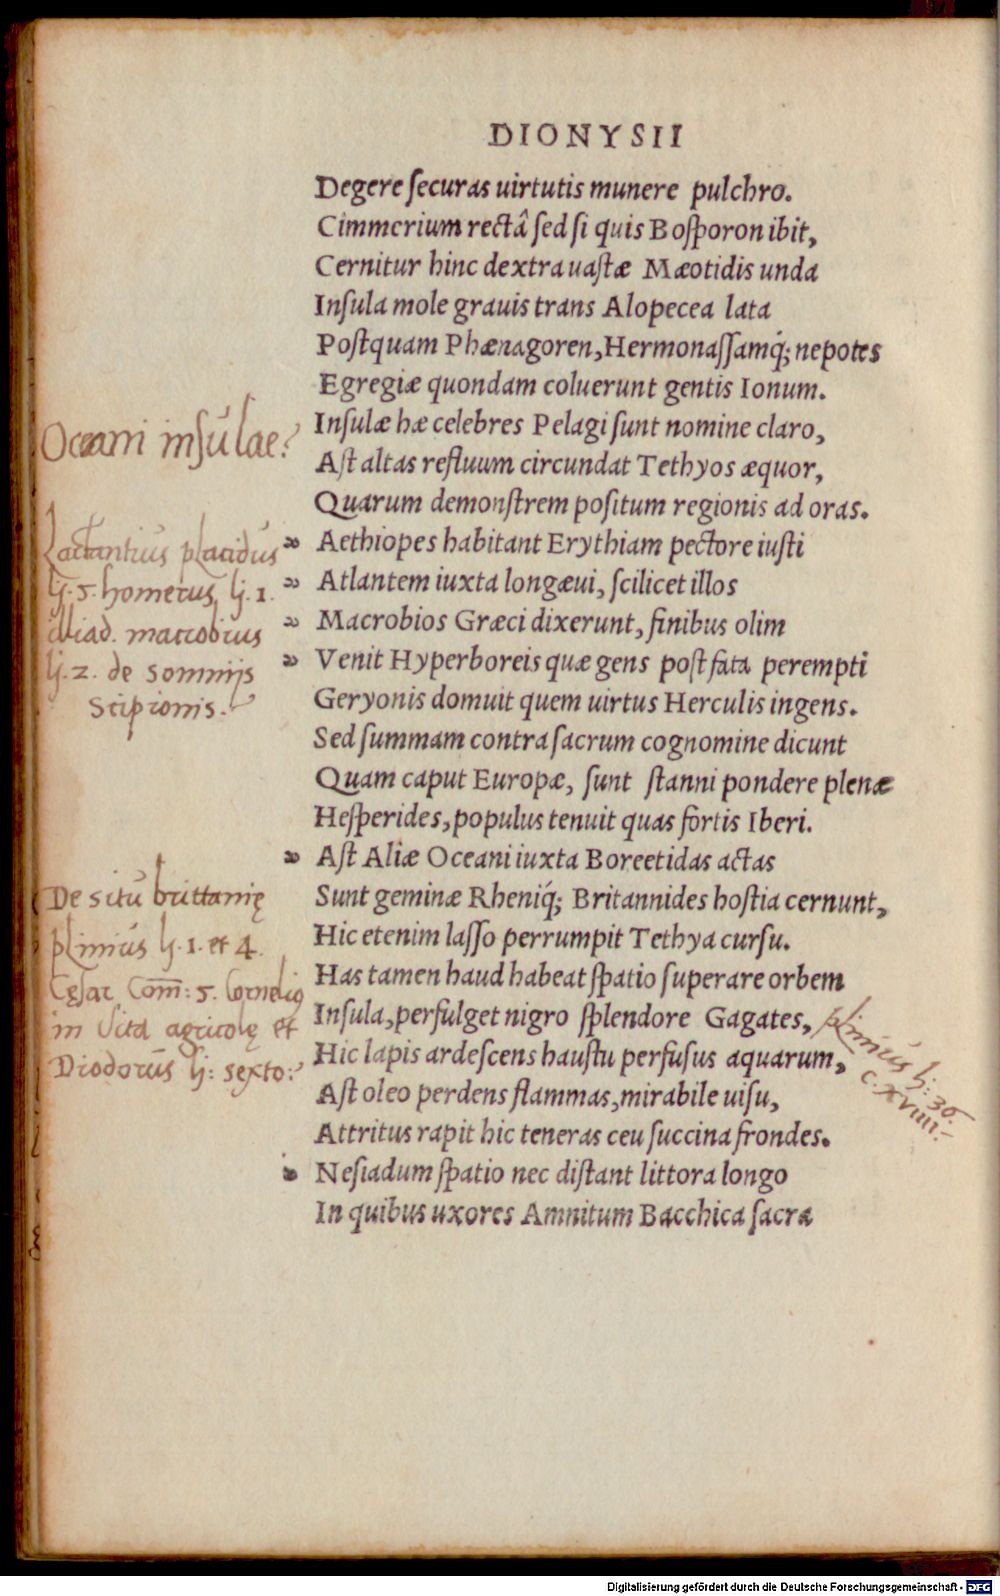 DIONYSII
Degere ſecuras uirtutis munere pulchro.
Cimmerium rectâ ſed ſi quis Boſporon ibit,
Cernitur hinc dextra uaſtæ Mæotidis unda
Inſula mole grauis trans Alopecea lata
Poſtquam Phænagoren, Hermonaſſamq́; nepotes
Egregiæ quondam coluerunt gentis Ionum.
Inſulæ hæ celebres Pelagi ſunt nomine claro,
Oceani inſulae:
Aſt altas refluum circundat Tethyos æquor,
Quarum demonſtrem poſitum regionis ad oras.
Aethiopes habitant Erythiam pectore iuſti
Atlantem iuxta longæui, ſcilicet illos
Macrobios Græci dixerunt, finibus olim
Venit Hyperboreis quæ gens poſt fata perempti
Geryonis domuit quem uirtus Herculis ingens.
Lactantius placidus
li. 5. homerus li. 1.
iliad. macrobius
li. 2. de somniis
Scipionis.
Sed ſummam contra ſacrum cognomine dicunt
Quam caput Europæ, ſunt ſtanni pondere plenæ
Heſperides, populus tenuit quas fortis Iberi.
Aſt Aliæ Oceani iuxta Boreetidas actas
Sunt geminæ Rheniq́; Britannides hoſtia cernunt,
Hic etenim laſſo perrumpit Tethya curſu.
Has tamen haud habeat ſpatio ſuperare orbem
Inſula, perfulget nigro ſplendore Gagates,
Hic lapis ardeſcens hauſtu perfuſus aquarum,
De situ brittanię
plinius li. 1. et 4.
Cęsar Com̄: 5. Corneliꝰ
in vita agricolę et
Diodorus li: sexto:
plinius li: 36.
c. xviiii.
Aſt oleo perdens flammas, mirabile uiſu,
Attritus rapit hic teneras ceu ſuccina frondes.
Neſiadum ſpatio nec diſtant littora longo
In quibus uxores Amnitum Bacchica ſacra
Digitalisierung gefördert durch die Deutsche Forschungsgemeinschaft - DFG